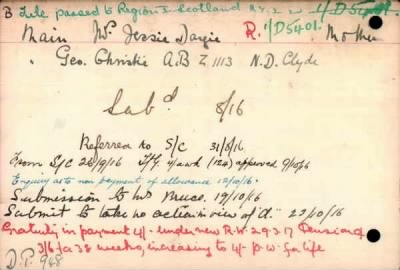 B File passed to Region 2 Scotland 1/D5401.
Main Mrs Jessie Davie R. 1/D5401. Mother
" Geo. Christie A.B Z 1113 N.D. Clyde
Sub'd 8/16
Referred to S/C 31/8/16
From S/C 28/9/16 approved 9/10/16
Enquiry as to non payment of allowance 12/10/16.
Submission to Mr Bruce. 19/10/16
Submit to take no action in view of d. 23/10/16
Gratuity in payment 4/- under new R.W. 29.3.17 Pension of
3/6 for 38 weeks, increasing to 4/- p.w. for life
D.P. 968